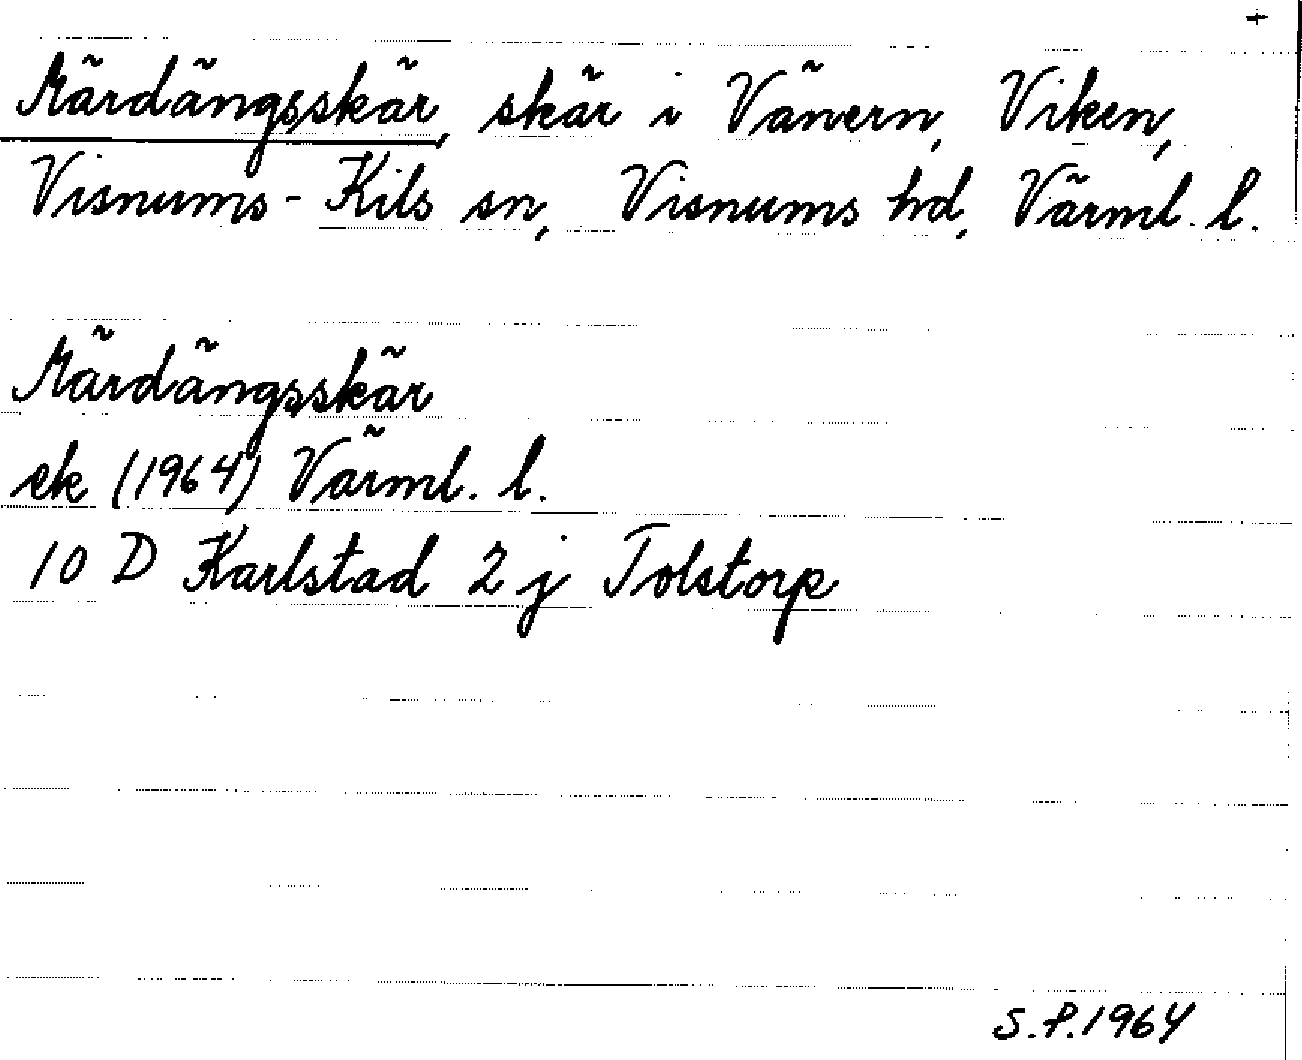 Märdängsskär, skär i Vänern, Viken,
Visnums-Kils sn, Visnums hd, Värml. l.
Märdängsskär
ek (1964) Värml. l.
10 D Karlstad 2 j Tolstorp
S.P.1964